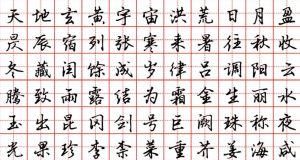 天地玄黄宇宙洪荒日月盈
昃辰宿列张寒来暑往秋收
冬藏闰馀成岁律吕调阳云
腾致雨露结为霜金生丽水
玉出昆冈剑号巨阙珠称夜
光果珍李柰菜重芥姜海咸